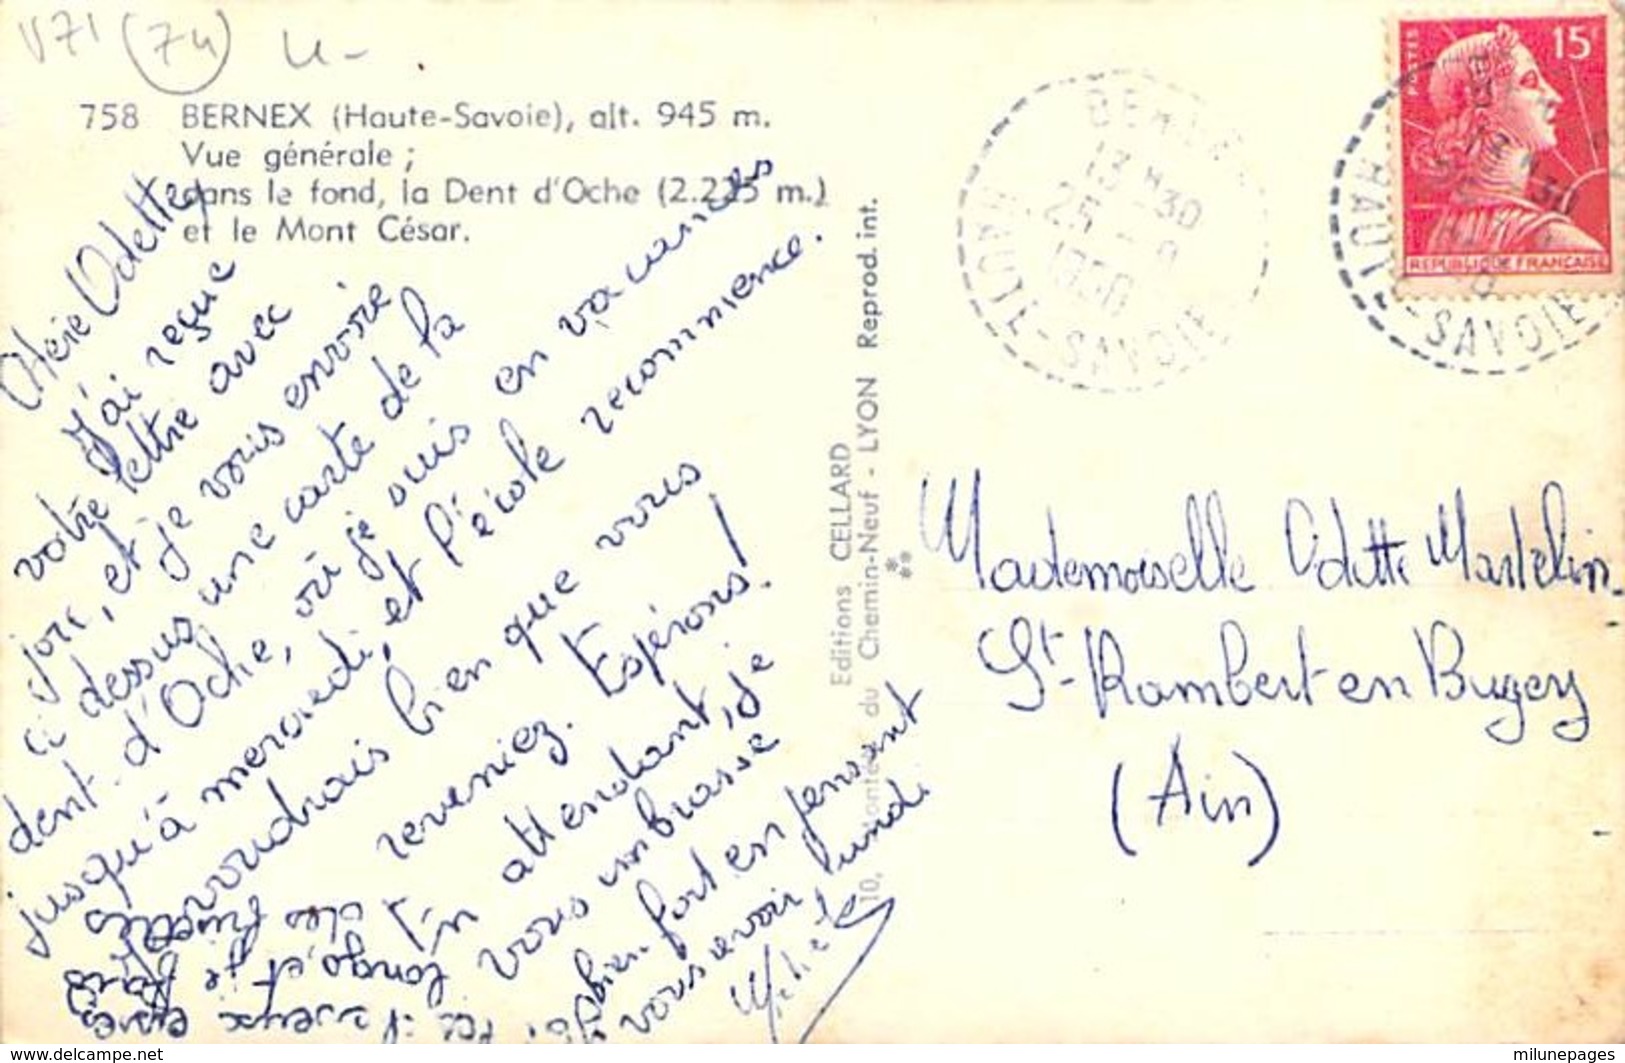 V71 (74) 4-
758 BERNEX (Haute-Savoie), alt. 945 m.
Vue générale ;
dans le fond, la Dent d'Oche (2.225 m.)
et le Mont César.
Chérie Odette,
J'ai reçue
votre lettre avec
joie, et je vous envoie
ci dessus une carte de la
dent d'Oche, où je suis en vacances
jusqu'à mercredi, et l'école recommence.
Je voudrais bien que vous
reveniez. Espérons!
En attendant, je
vous embrasse
bien fort en pensant
vous revoir lundi
Michel
Editions CELLARD
10, Montée du Chemin-Neuf - LYON Reprod. int.
13 H 30
25 - 8
HAUTE-SAVOIE
POSTES
15F
REPUBLIQUE FRANÇAISE
HAUTE-SAVOIE
Mademoiselle Odette Martelin.
St-Rambert en Bugey
(Ain)
www.delcampe.net
milunepages